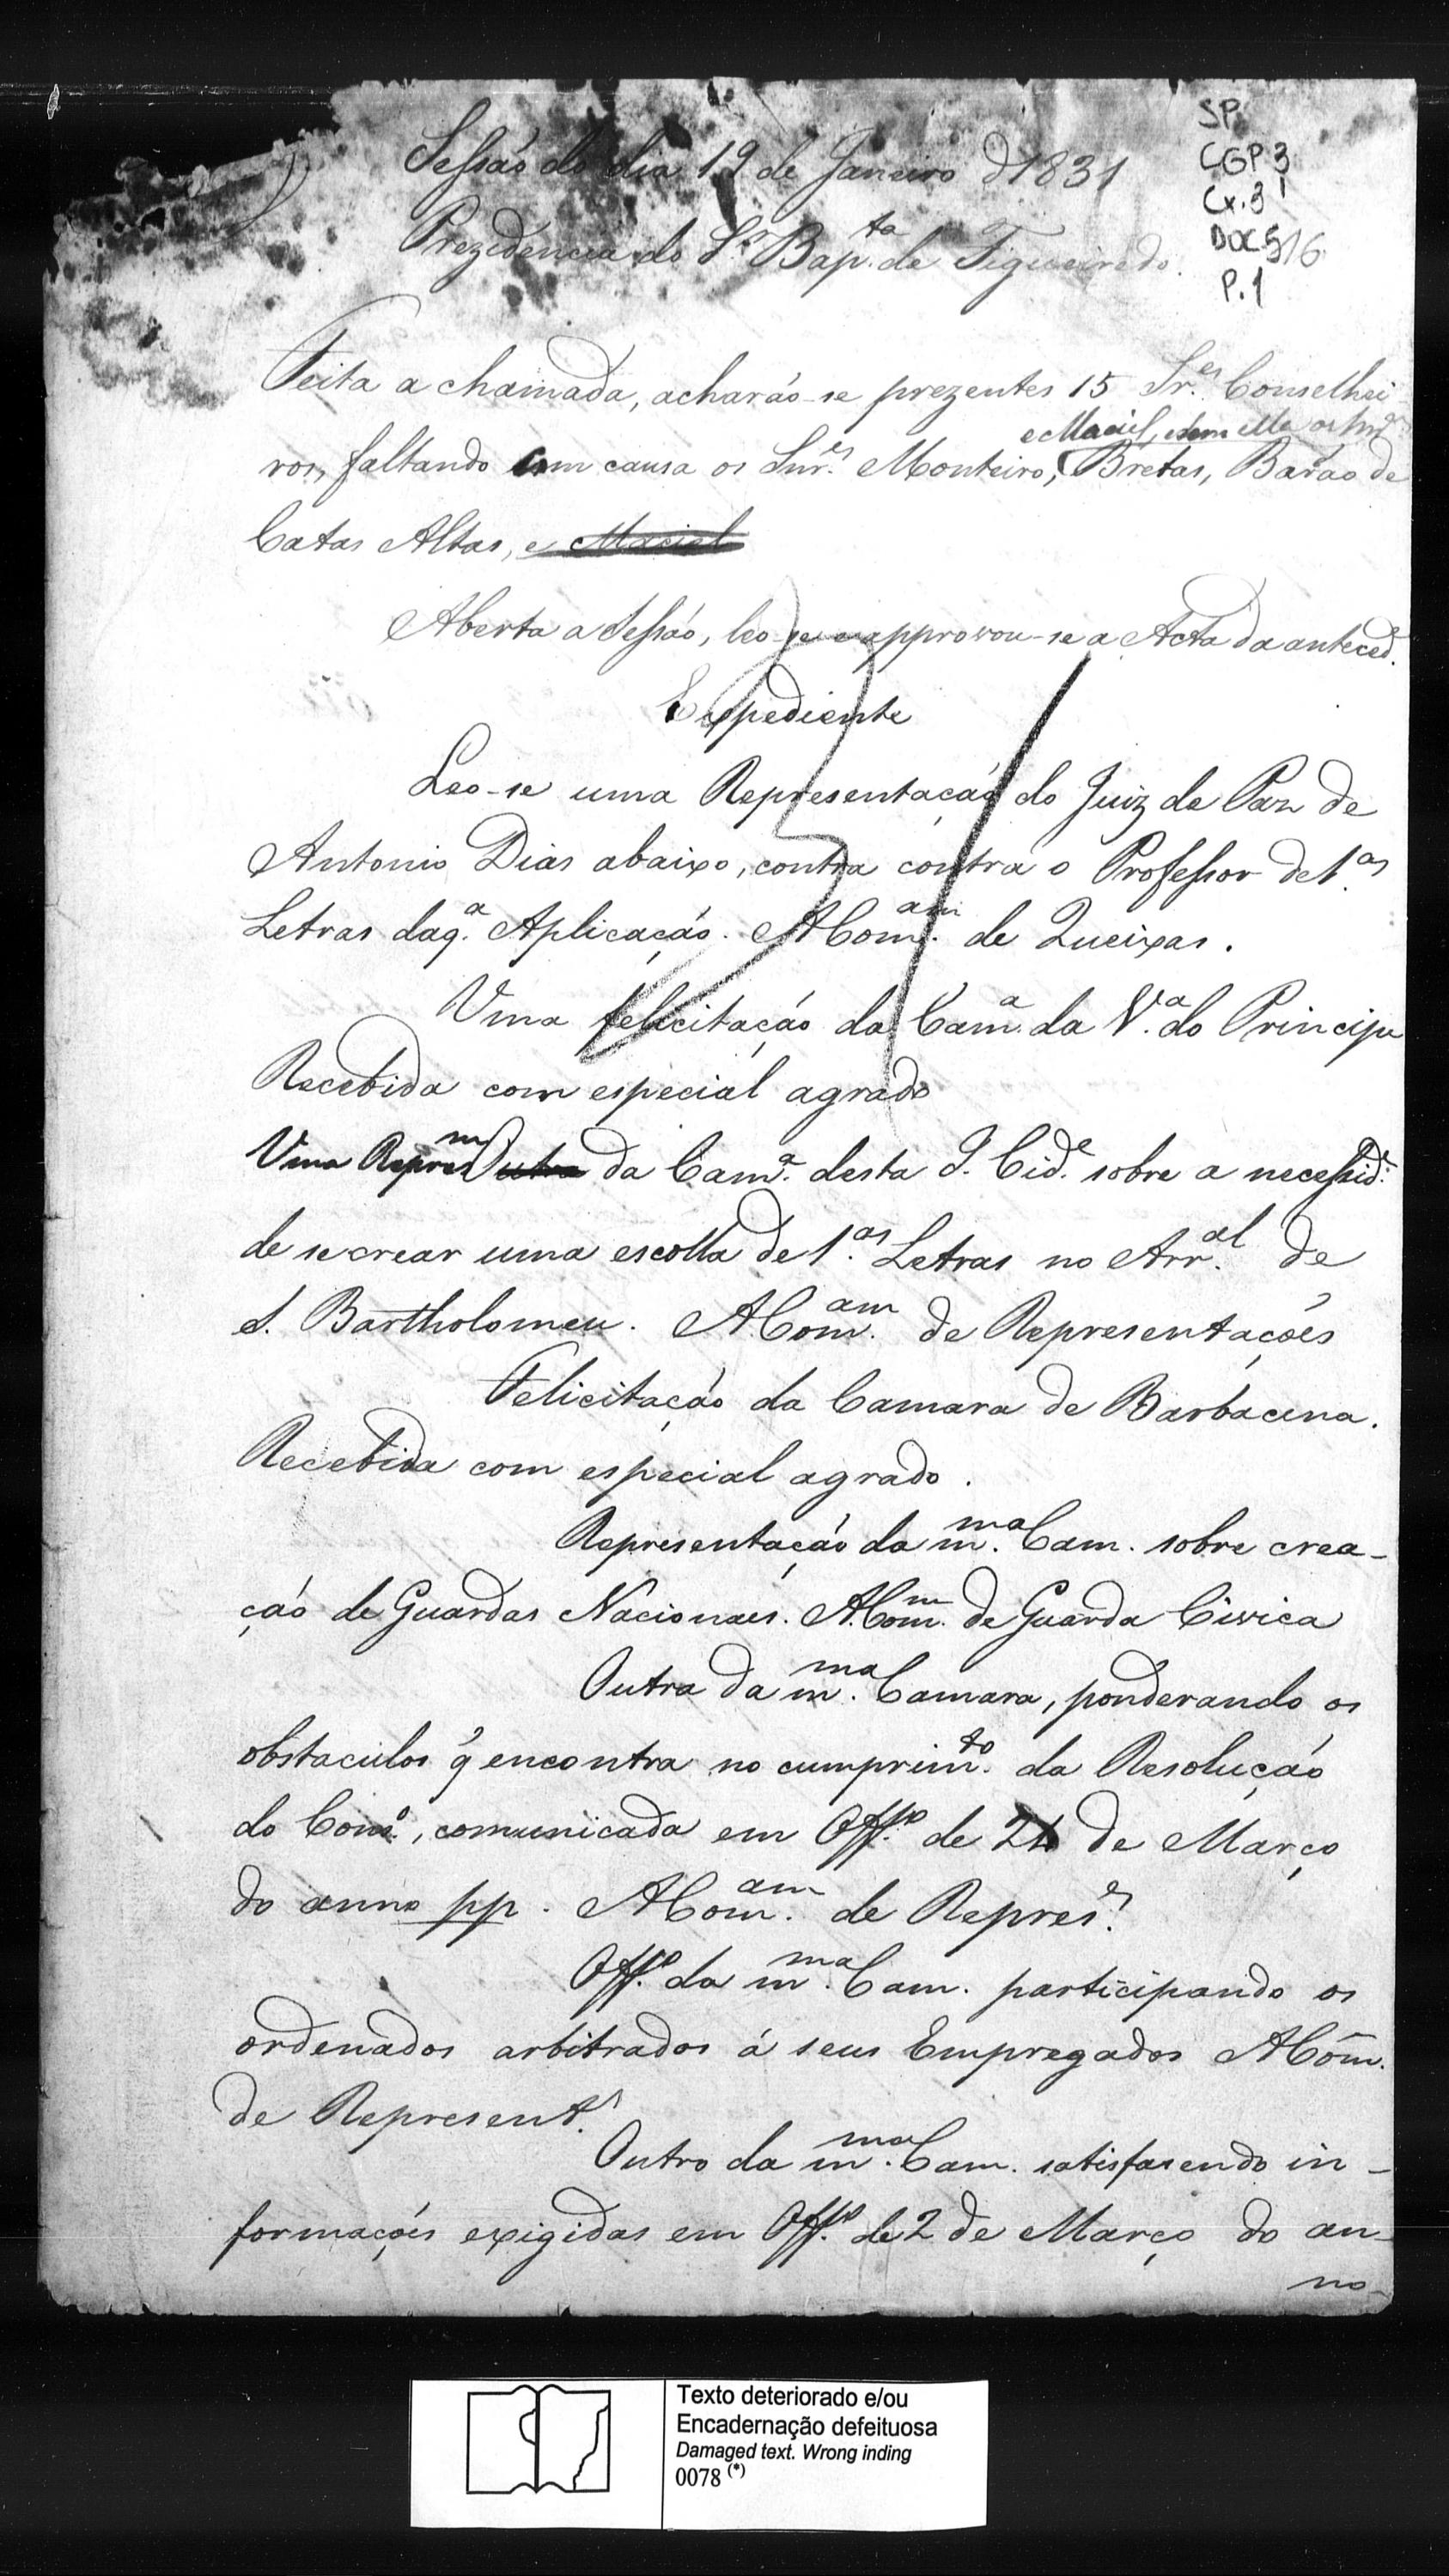 SP
CGP 3
Cx. 3
DOC 516
P. 1
Sessaõ do dia 19 de Janeiro d 1831
Prezidencia do Sr. Bap.ta de Figueiredo.
Feita a chamada, acharaõ-se prezentes 15 Sr.es Conselhei-
e Maciel, e sem ella os Snr.es
ros, faltando com causa os Snr.es Monteiro, Bretas, Baraõ de
Catas Altas, e Maciel
Aberta a Sessaõ, leo-se e approvou-se a Acta da anteced.
Expediente
Leo-se uma Representaçaõ do Juiz de Paz de
Antonio Dias abaixo, contra contra o Professor de 1.as
Letras daq.a Aplicaçaõ. A Com.am de Queixas.
Uma felicitaçaõ da Cam.a da V.a do Principe
Recebida com especial agrado
Uma Repres.m Outra da Cam.a desta I. Cid.e sobre a necessid.e
de se crear uma escolla de 1.as Letras no Arr.al de
S. Bartholomeu. A Com.am de Representaçoẽs
Felicitaçaõ da Camara de Barbacena.
Recebida com especial agrado.
Representaçaõ da m.ma Cam. sobre crea-
çaõ de Guardas Nacionaes. A Com.m de Guarda Civica
Outra da m.ma Camara, ponderando os
obstaculos q̃ encontra no cumprim.to da Resoluçaõ
do Cons.o, comunicada em Off.o de 24 de Março
do anno pp. A Com.am de Repres.es
Off.o da m.ma Cam. participando os
ordenados arbitrados á seus Empregados A Com̃.
de Represent.s
Outro da m.ma Cam. satisfasendo in-
formaçoẽs exigidas em Off.o de 2 de Março do an-
no-
Texto deteriorado e/ou
Encadernação defeituosa
Damaged text. Wrong inding
0078 (*)